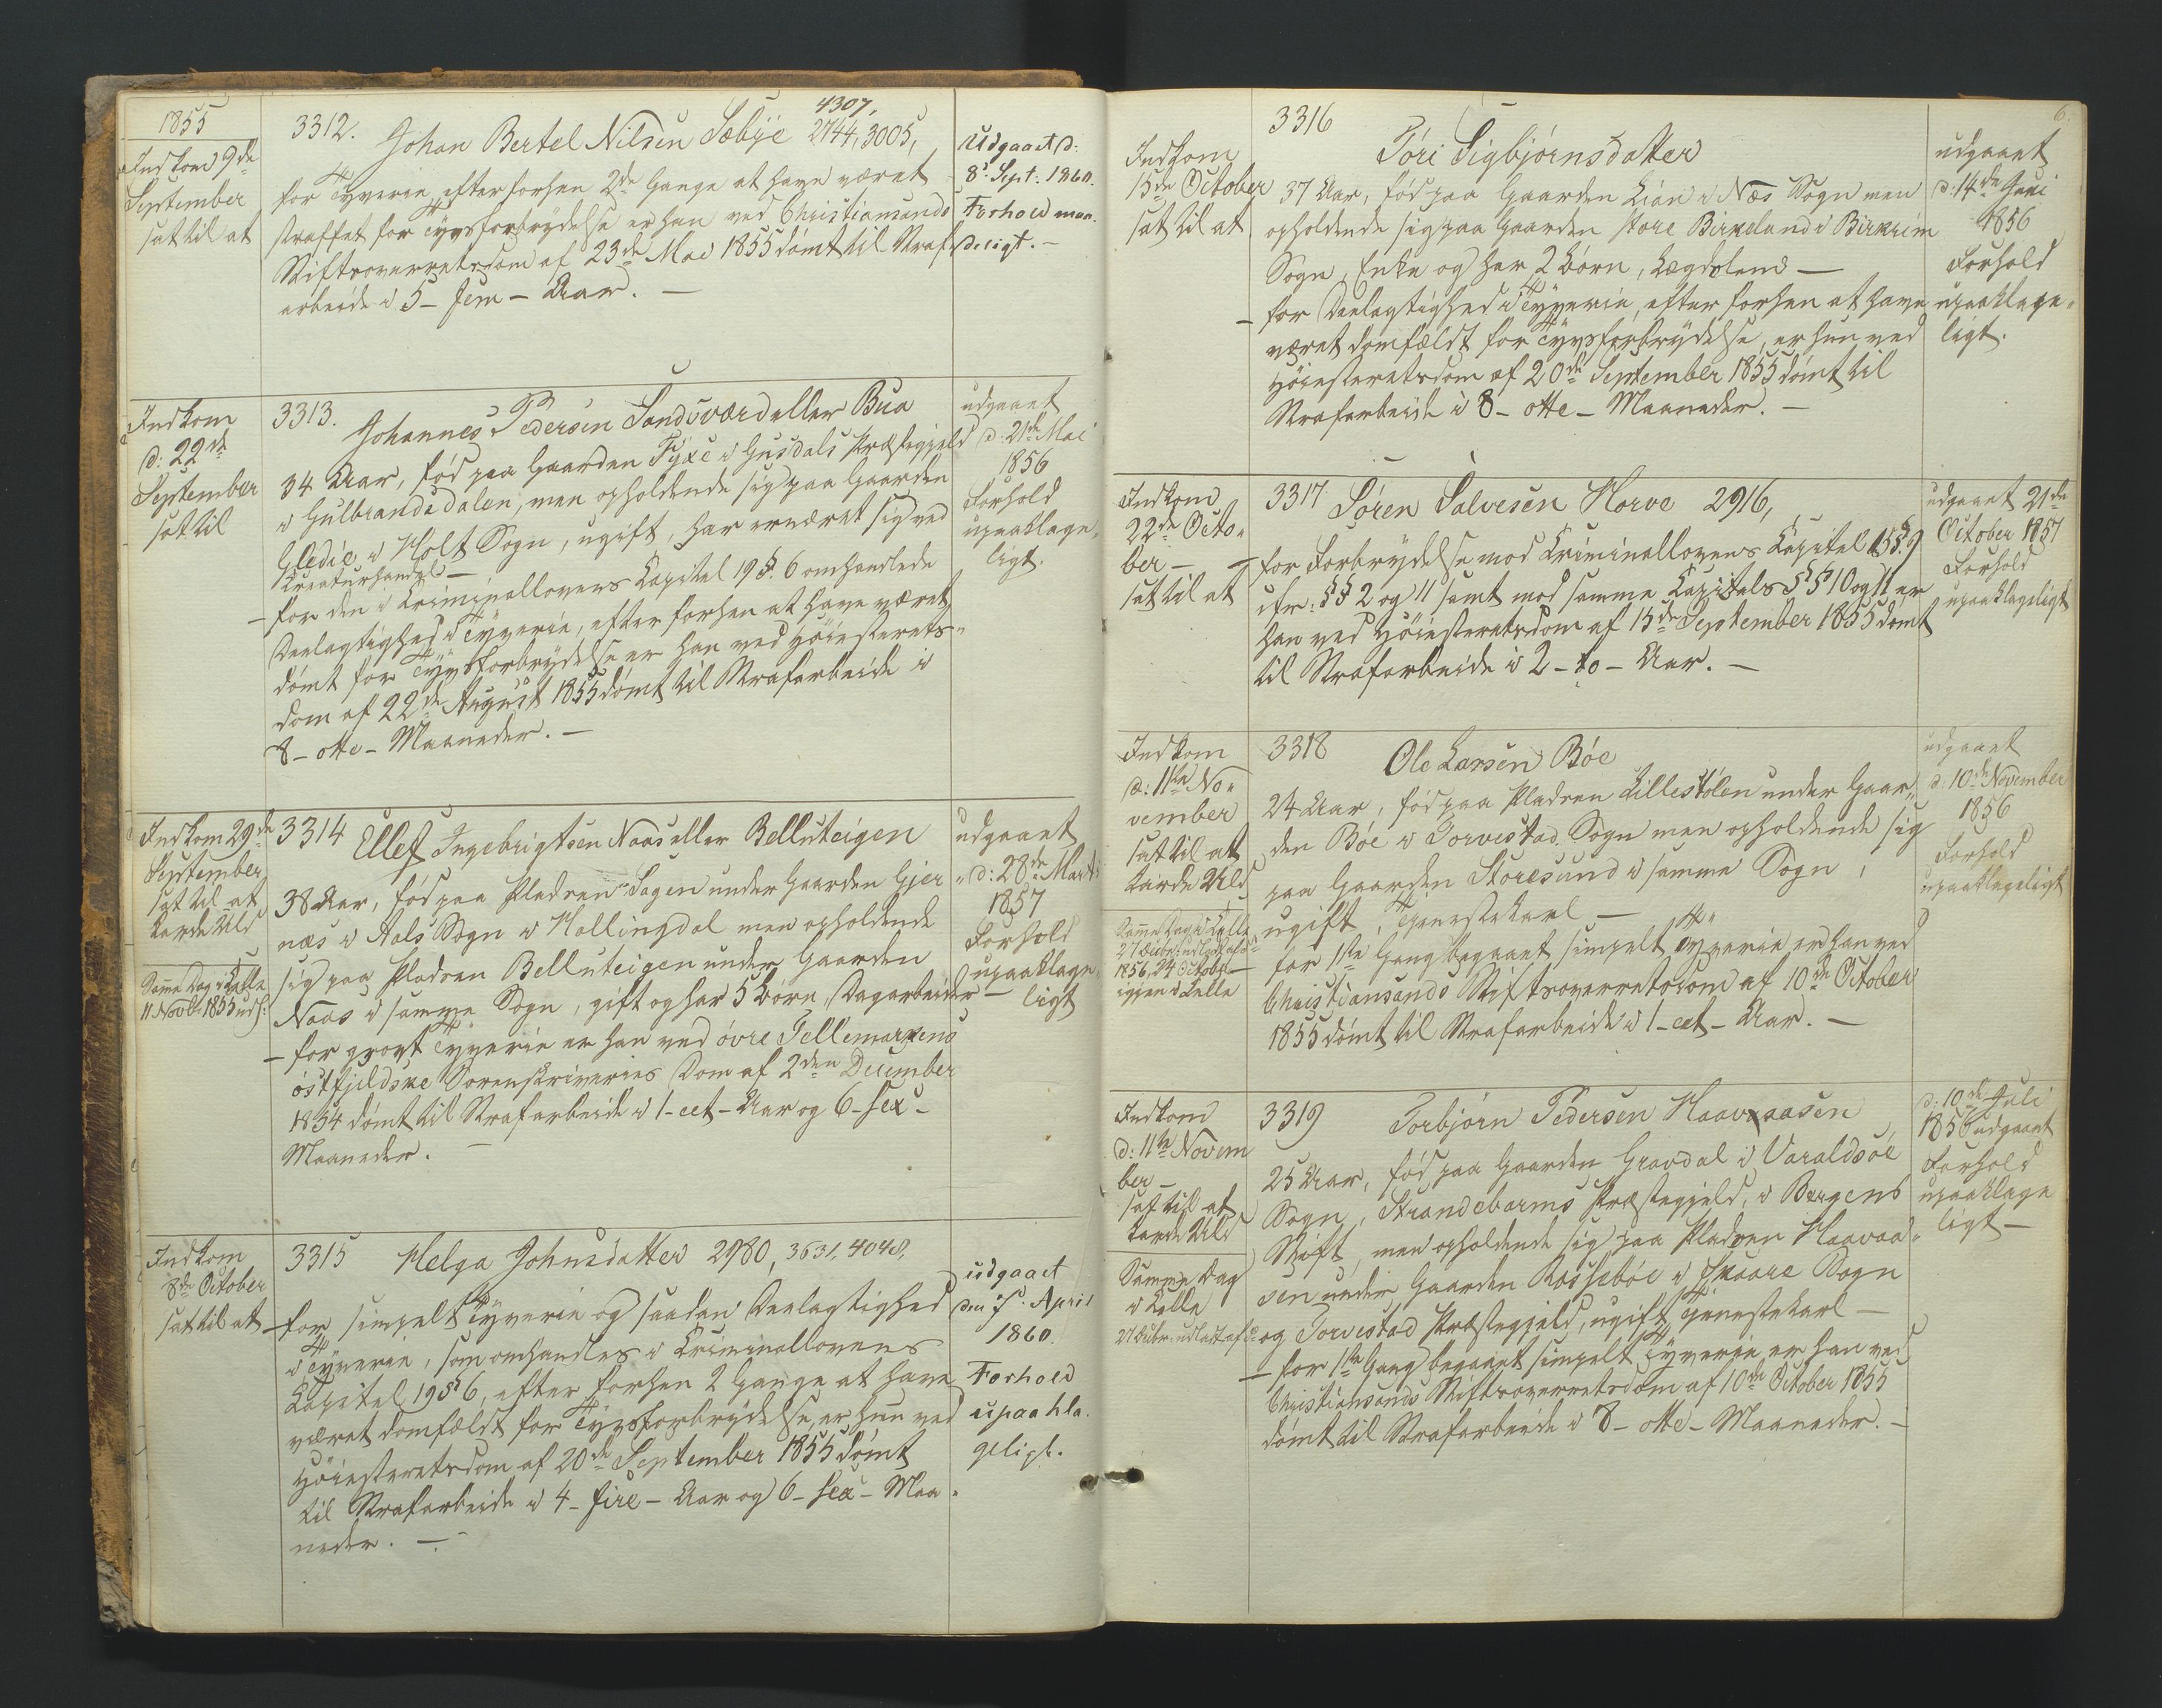 1855
Indkom 9de
September
sat til at
3312. Johan Bertel Nilsen Sæbye 2744, 3005,
4307,
for Tyverie efter forhen 2de Gange at have været
straffet for Tyvsforbrydelse er han ved Christiansands
Stiftsoverretsdom af 23de Mai 1855 dømt til Straf
arbeide i 5 - fem - Aar. -
Udgaaet d:
8d. Sept: 1860.
Forhold maa-
deligt. -
Indkom
d: 22de
September
sat til
3313. Johannes Pedersen Sandsværd eller Bua
34 Aar, fød paa Gaarden Fyxe i Gusdals Præstegjeld
i Gulbrandsdalen, men opholdende sig paa Gaarden
Gledie i Holt Sogn, ugift, har ernæret sig ved
Kreaturhandel -
- for den i Criminallovens Capitel 19 §. 6 omhandlede
Deelagtighed i Tyverie, efter forhen at have været
dømt for Tyvsforbrydelse er han ved Høiesterets-
dom af 22de August 1855 dømt til Strafarbeide i
8 - otte - Maaneder. -
udgaaet
d: 21de Mai
1856
Forhold
upaaklage-
ligt.
Indkom 29de
September
sat til at
karde Uld
Samme Dag i Celle
11 Novbr 1855 uds:
3314 Ellef Ingebrigtsen Naas eller Belluteigen
38 Aar, fød paa Pladsen Sagen under Gaarden Gjer-
næs i Aals Sogn i Hallingdal men opholdende
sig paa Pladsen Belluteigen under Gaarden
Naas i samme Sogn, gift og har 5 Børn, Dagarbeider -
- for grovt Tyverie er han ved øvre Tellemarkens
østfjeldske Sorenskriveries Dom af 2den December
1854 dømt til Strafarbeide i 1 - eet - Aar og 6 - sex -
Maaneder. -
udgaaet
d: 28de Marts
1857
Forhold
upaaklage-
ligt
Indkom
8de October
sat til at
3315 Helga Johnsdatter 2980, 3631, 4048,
- for simpelt Tyverie og saadan Deelagtighed
i Tyverie, som omhandles i Criminallovens
Capitel 19 § 6, efter forhen 2 Gange at have
været domfældt for Tyvsforbrydelse, er hun ved
Høiesteretsdom af 20de September 1855 dømt
til Strafarbeide i 4 - fire - Aar og 6 - sex - Maa-
neder. -
udgaaet
April
1860.
Forhold
upaakla-
geligt.
6.
Indkom
15de October
sat til at
3316
Tøri Sigbjørnsdatter
37 Aar, fød paa Gaarden Lian i Næs Sogn men
opholdende sig paa Gaarden store Birkeland i Birkrim
Sogn, Enke og har 2 Børn, Lægdslem -
- for Deelagtighed i Tyverie, efter forhen at have
været domfældt for Tyvsforbrydelse, er hun ved
Høiesteretsdom af 20de September 1855 dømt til
Strafarbeide i 8 - otte - Maaneder. -
udgaaet
d: 14de Juni
1856
Forhold
upaaklage-
ligt.
Indkom
22de Octo-
ber -
sat til at
3317 Søren Salvesen Horve 2916,
- for Forbrydelse mod Criminallovens Capitel 15 §. 9
cfr: §§ 2 og 11 samt mod samme Capitels §§ 10 og 11 er
han ved Høiesteretsdom af 15de September 1855 dømt
til Strafarbeide i 2 - to - Aar. -
udgaaet 21de
October 1857
Forhold
upaaklageligt
Indkom
d: 11te No-
vember
sat til at
karde Uld
Samme Dag i Celle
1856, 24 October
igjen i Celle
3318 Ole Larsen Bøe
24 Aar, fød paa Pladsen Lillestølen under Gaar-
den Bøe i Torvestad Sogn men opholdende sig
paa Gaarden Storesund i samme Sogn,
ugift, Tjenestekarl -
- for 1ste Gang begaaet simpelt Tyverie er han ved
Christiansands Stiftsoverretsdom af 10de October
1855 dømt til Strafarbeide i 1 - eet - Aar. -
udgaaet
d: 10de November
1856
Forhold
upaaklageligt
Indkom
d: 11te Novem
ber -
sat til at
karde Uld
Samme Dag
i Celle
3319 Torbjørn Pedersen Haavaasen
25 Aar, fød paa Gaarden Gravdal i Varaldsøe
Sogn, Strandebarms Præstegjeld, i Bergens
Stift, men opholdende sig paa Pladsen Haavaa-
sen under Gaarden Rossebøe i Skaare Sogn
og Torvestad Præstegjeld, ugift, Tjenestekarl -
- for 1ste Gang begaaet simpelt Tyverie er han ved
Christiansands Stiftsoverretsdom af 10de October 1855
dømt til Strafarbeide i 8 - otte - Maaneder. -
d: 10de Juli
1856 udgaaet
Forhold
upaaklage
ligt -